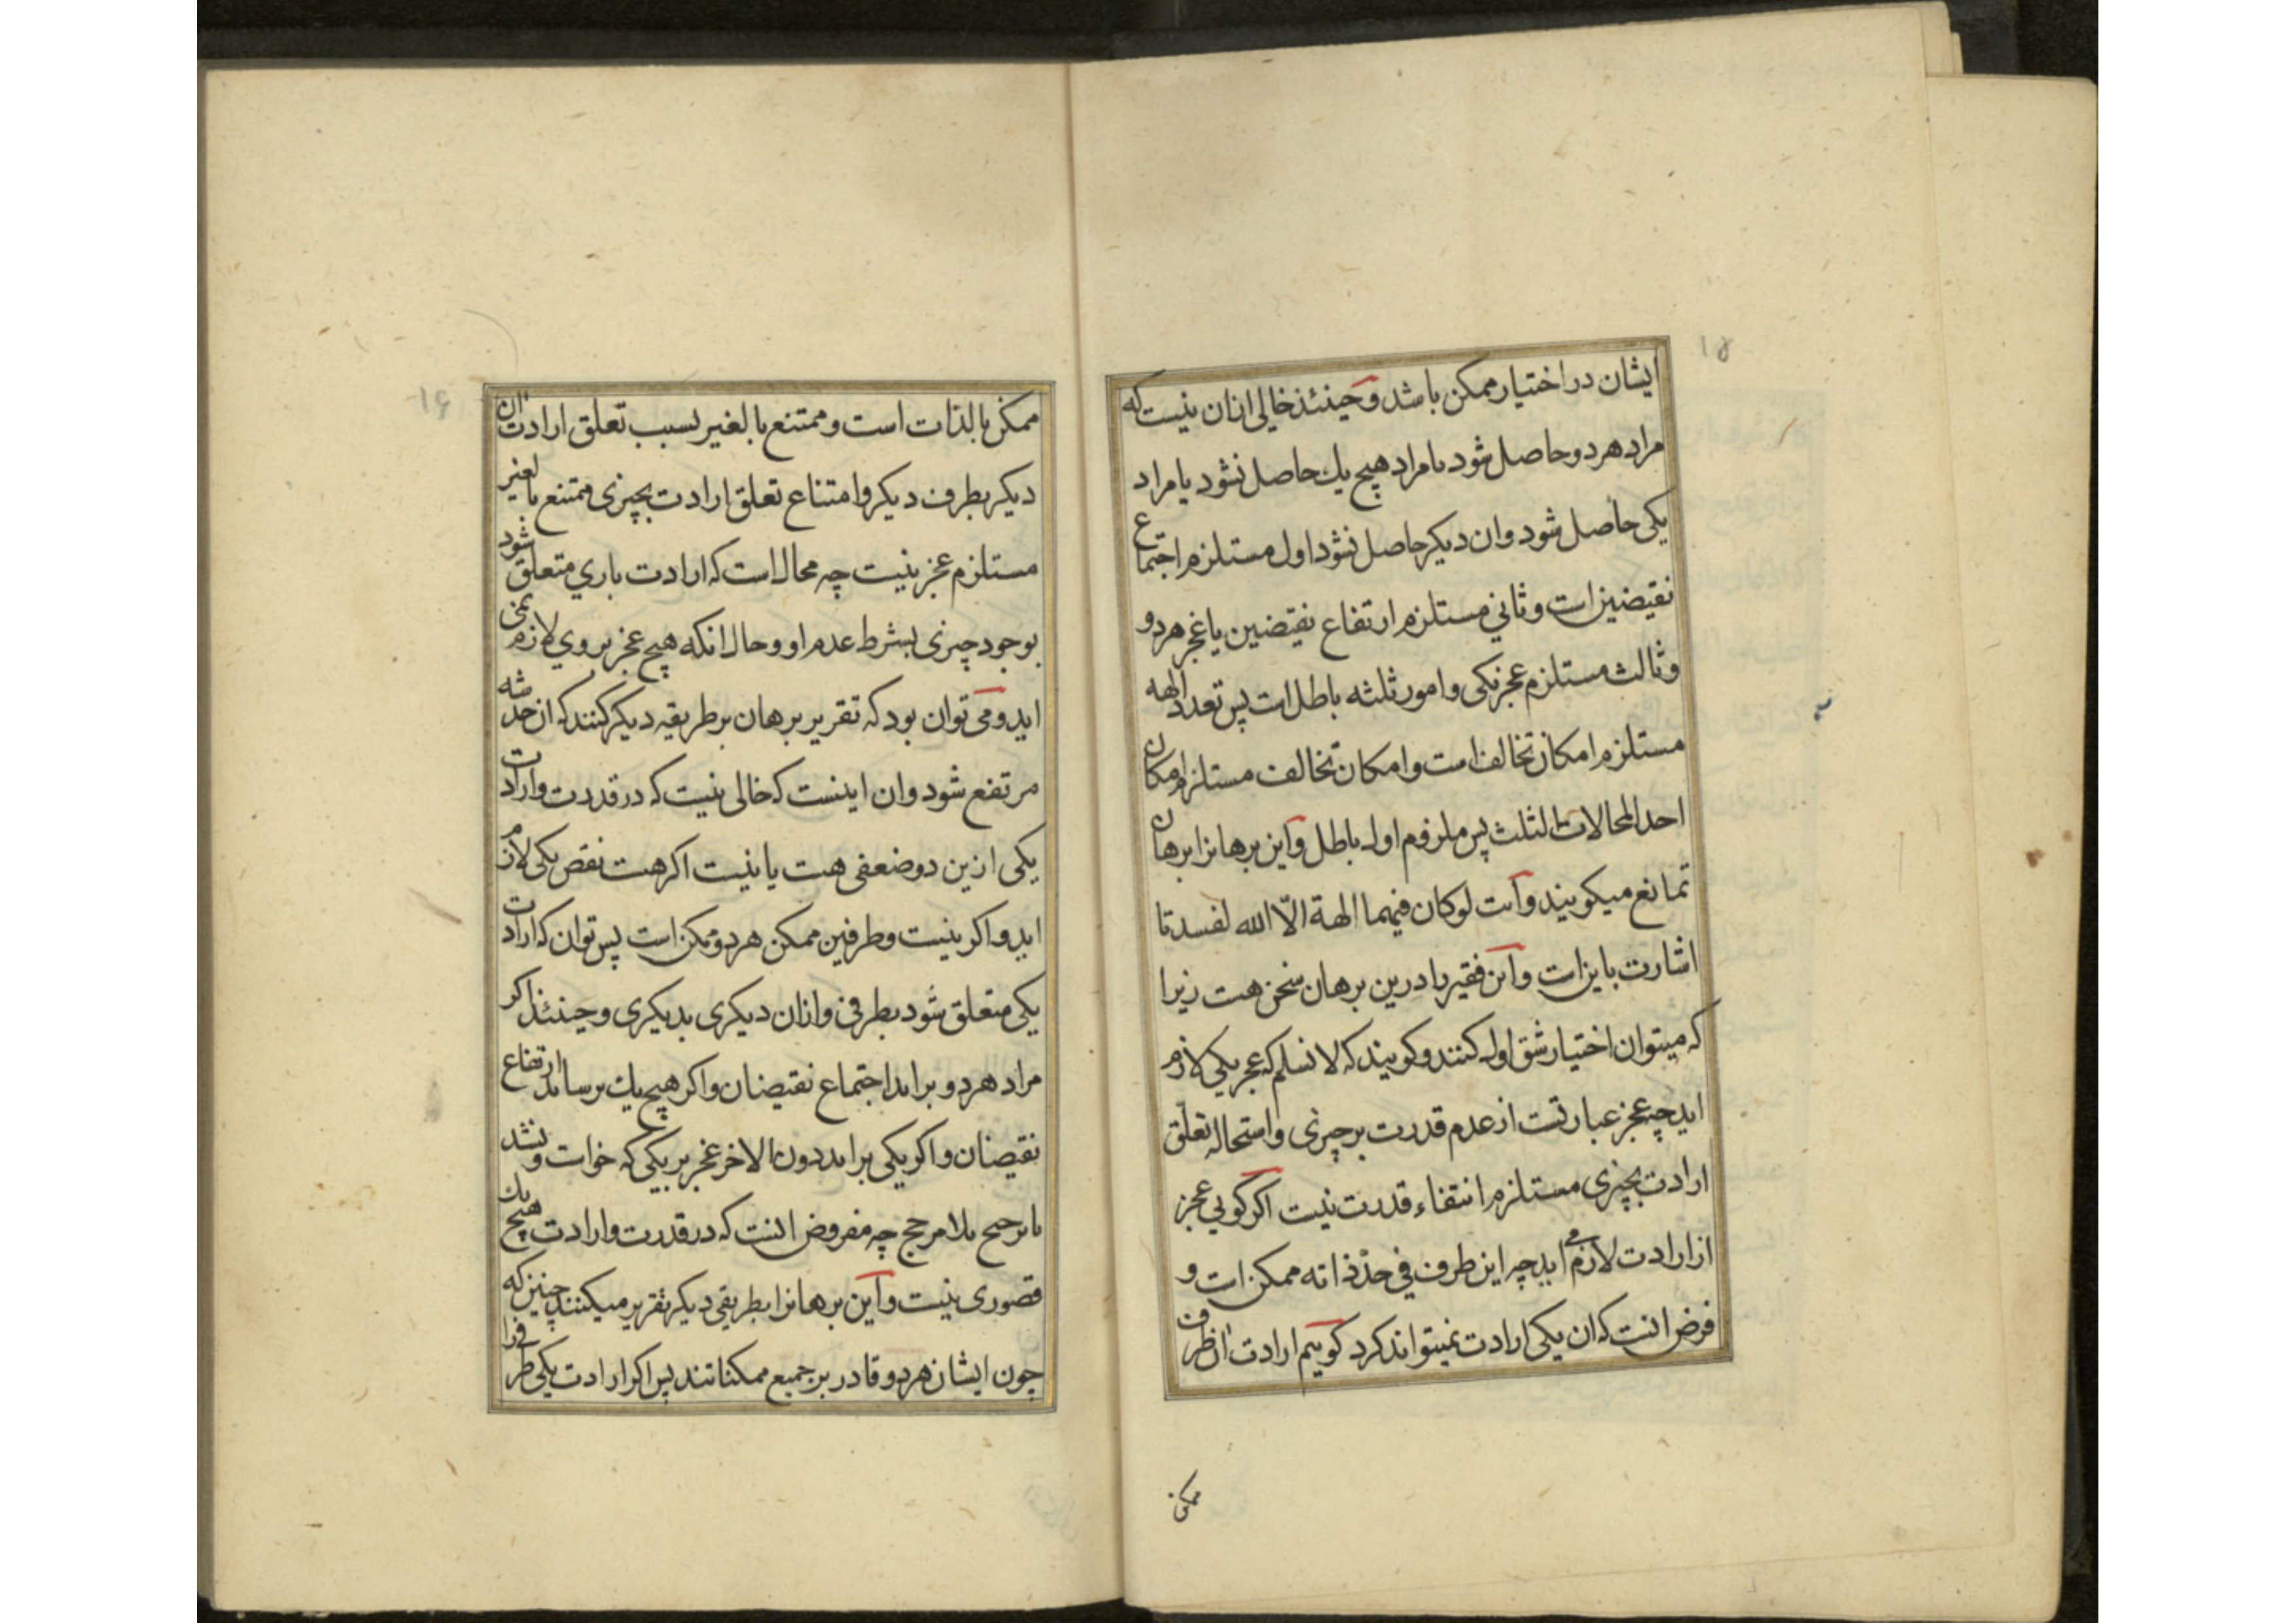 ۱۵
ایشان در اختیار ممکن باشد و حینئذ خالی ازان نیست که
مراد هر دو حاصل شود یا مراد هیچ یك حاصل نشود یا مراد
یکی حاصل شود وان دیکر حاصل نشود اول مستلزم اجتماع
نقیضین است و ثاني مستلزم ارتفاع نقیضین یا عجز هر دو
و ثالث مستلزم عجز یکی و امور ثلثه باطل است پس تعدد الهه
مستلزم امکان تخالف است و امکان تخالف مستلزم امکان
احد المحالات الثلث پس ملزوم اول باطل و این برهانرا برهان
تمانع میکویند و آیت لو کان فیهما الهة الّا الله لفسدتا
اشارت باین است و این فقیر را درین برهان سخن هست زیرا
که میتوان اختیار شق اول کنند و کویند که لا نسلم که عجز یکی لازم
اید چه عجز عبارتست از عدم قدرت بر چیزی و استحاله تعلّق
ارادت بچیزی مستلزم انتفاء قدرت نیست اکر کویی عجز
از ارادت لازم می اید چه این طرف في حدّ ذاته ممکن است و
فرض انست که ان یکی ارادت نمیتواند کرد کوییم ارادت ان طرف
ممکن
۱۶
ممکن بالذات است و ممتنع بالغیر بسبب تعلق ارادت ان
دیکر بطرف دیکر و امتناع تعلق ارادت بچیزی ممتنع بالغیر
مستلزم عجز نیست چه محال است که ارادت باري متعلق شود
بوجود چیزی بشرط عدم او و حال انکه هیچ عجز بر وي لازم نمی
اید و می توان بود که تقریر برهان بر طریقه دیکر کنند که ان خدشه
مرتفع شود وان اینست که خالی نیست که در قدرت و ارادت
یکی ازین دو ضعفی هست یا نیست اکر هست نقص یکی لازم
اید و اکر نیست و طرفین ممکن هر دو ممکن است پس توان که ارادت
یکی متعلق شود بطرفی و ازان دیکری بدیکری و حینئذ اکر
مراد هر دو براید اجتماع نقیضان و اکر هیچ یك برنیاید ارتفاع
نقیضان و اکر یکی براید دون الاخر عجز بر یکی که خواست و نشد
یا ترجیح بلا مرجح چه مفروض انست که در قدرت و ارادت هیچ یك
قصوری نیست و این برهانرا بطریقی دیکر تقریر میکنند چنین که
چون ایشان هر دو قادر بر جمیع ممکناتند پس اکر ارادت یکی طرفی را